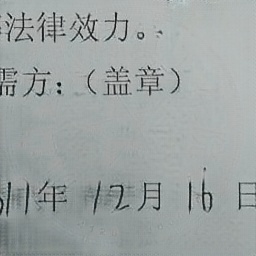 法律效力。
需方：（盖章）
11年 12月 16日